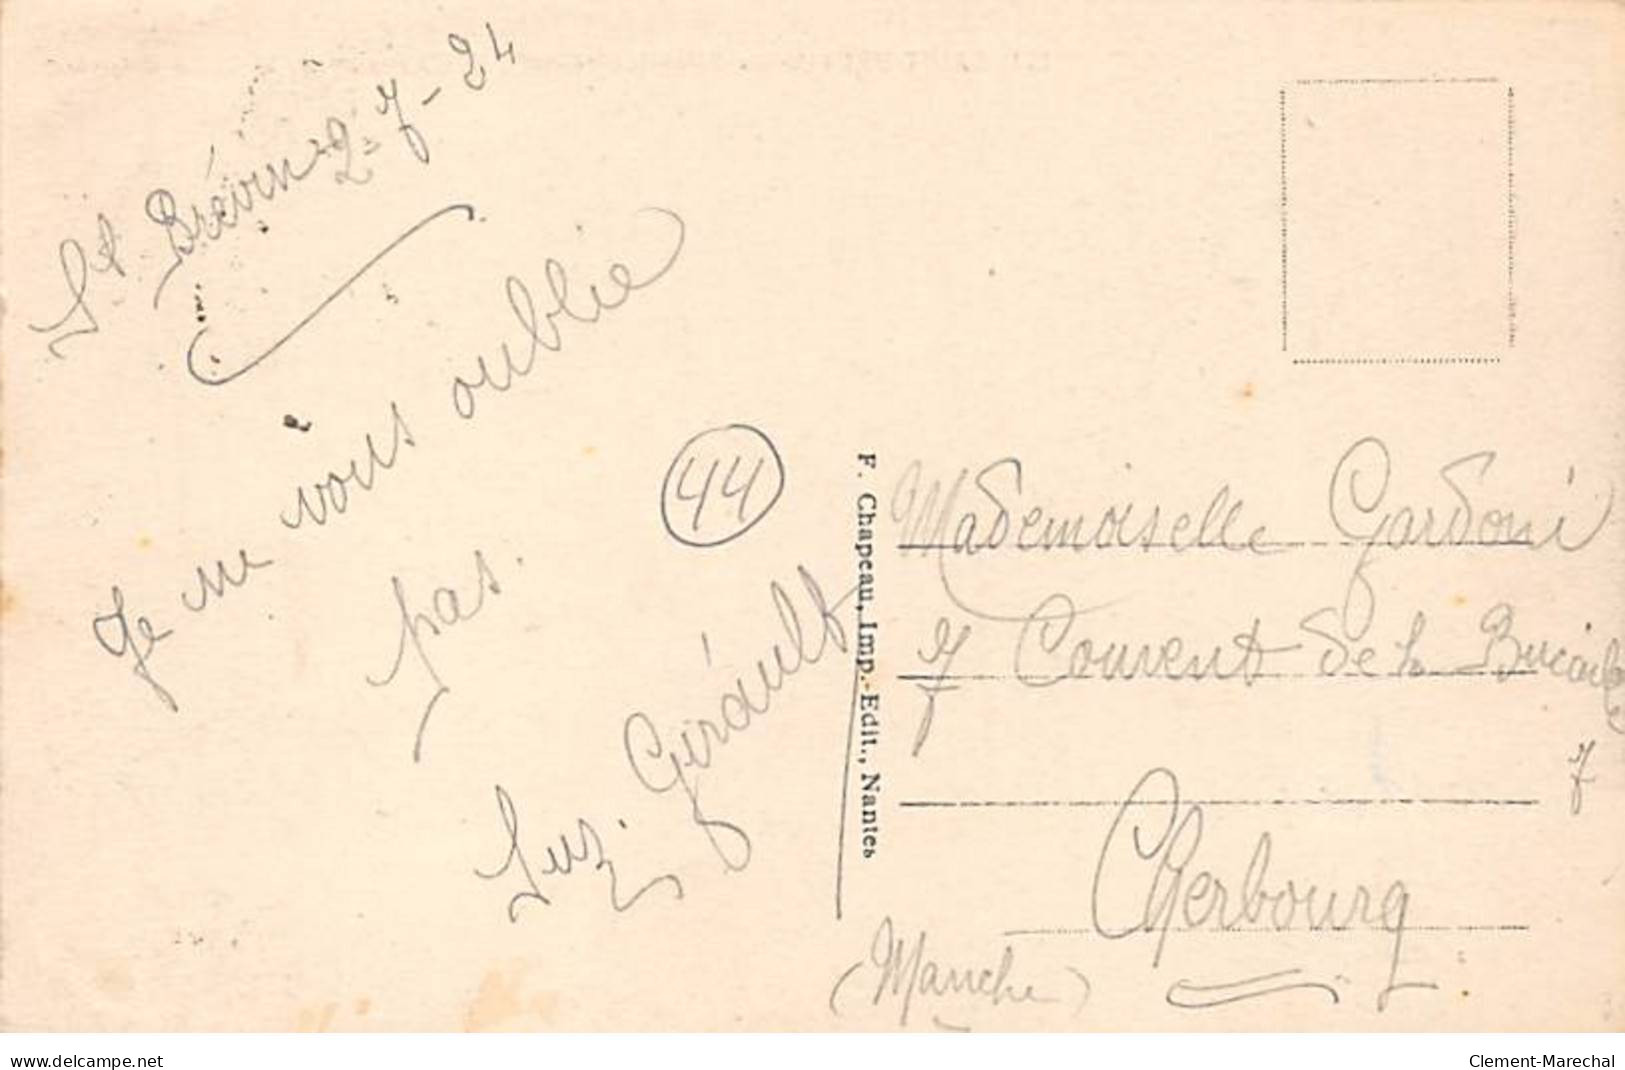 St Brévin 2-7-24
Je me vous oublie
pas.
Suz. Gérault
44
F. Chapeau, Imp.-Edit., Nantes
Mademoiselle Gardoni
7 Couvent de la Bucaille 7
Cherbourg
(Manche)
www.delcampe.net
Clement-Marechal